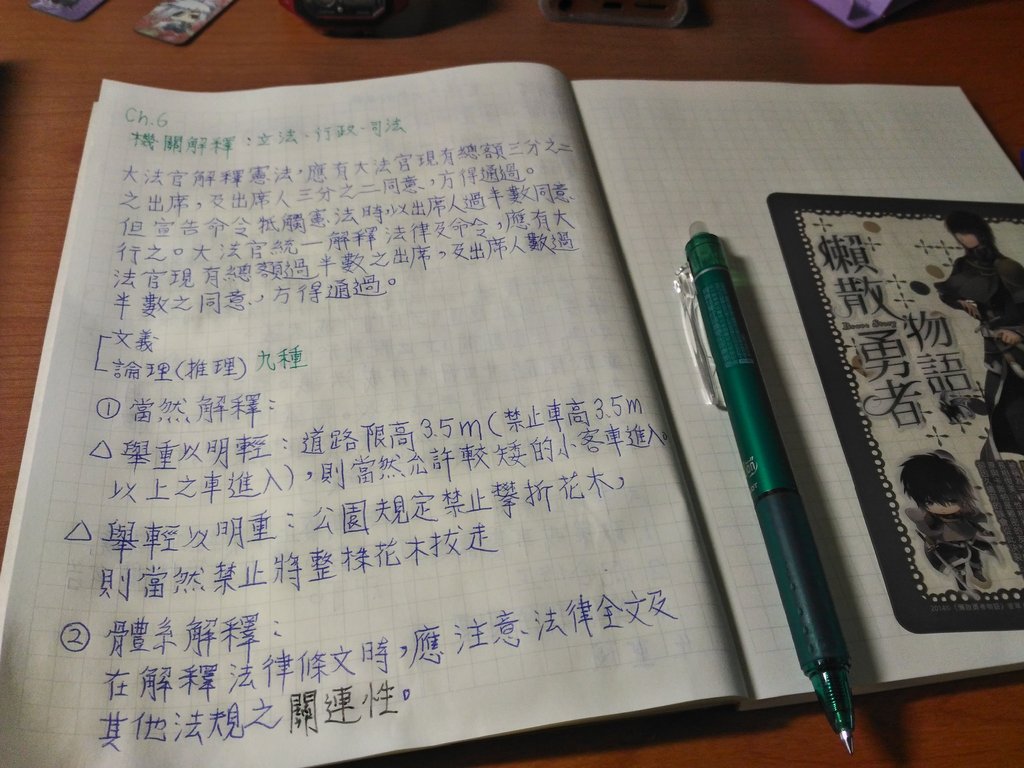 Ch.6
機關解釋：立法、行政、司法
大法官解釋憲法，應有大法官現有總額三分之二
之出席，及出席人三分之二同意，方得通過。
但宣告命令牴觸憲法時，以出席人過半數同意
行之。大法官統一解釋法律及命令，應有大
法官現有總額過半數之出席，及出席人數過
半數之同意，方得通過。
文義
論理(推理) 九種
① 當然解釋：
△ 舉重以明輕：道路限高3.5m(禁止車高3.5m
以上之車進入)，則當然允許較矮的小客車進入。
△ 舉輕以明重：公園規定禁止攀折花木，
則當然禁止將整株花木拔走
② 體系解釋：
在解釋法律條文時，應注意法律全文及
其他法規之關連性。
懶散
勇者
物語
Brave Story